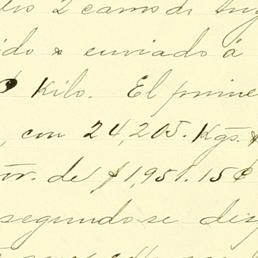 2 carros de
ido & enviado á
¢ Kilo. El prime
, con 24,205. Kgs. &
or. de $1,951.15¢
segundo se dis